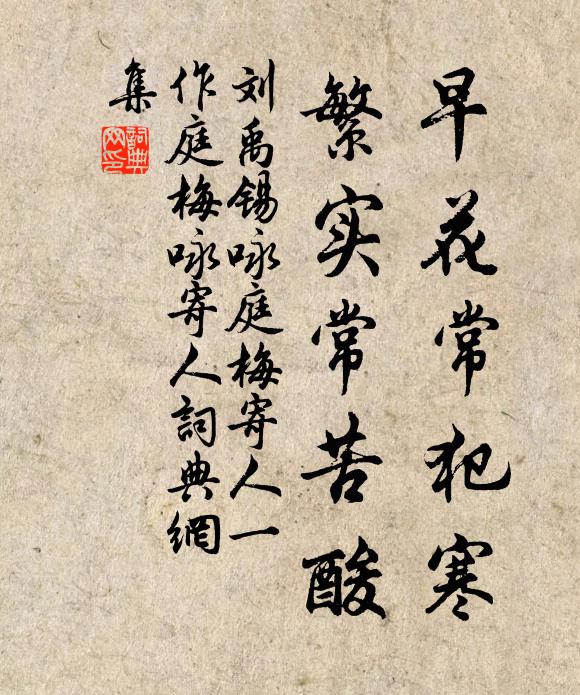 早花常犯寒
繁实常苦酸
刘禹锡咏庭梅寄人一
作庭梅咏寄人詞典網
集
詞典
网印